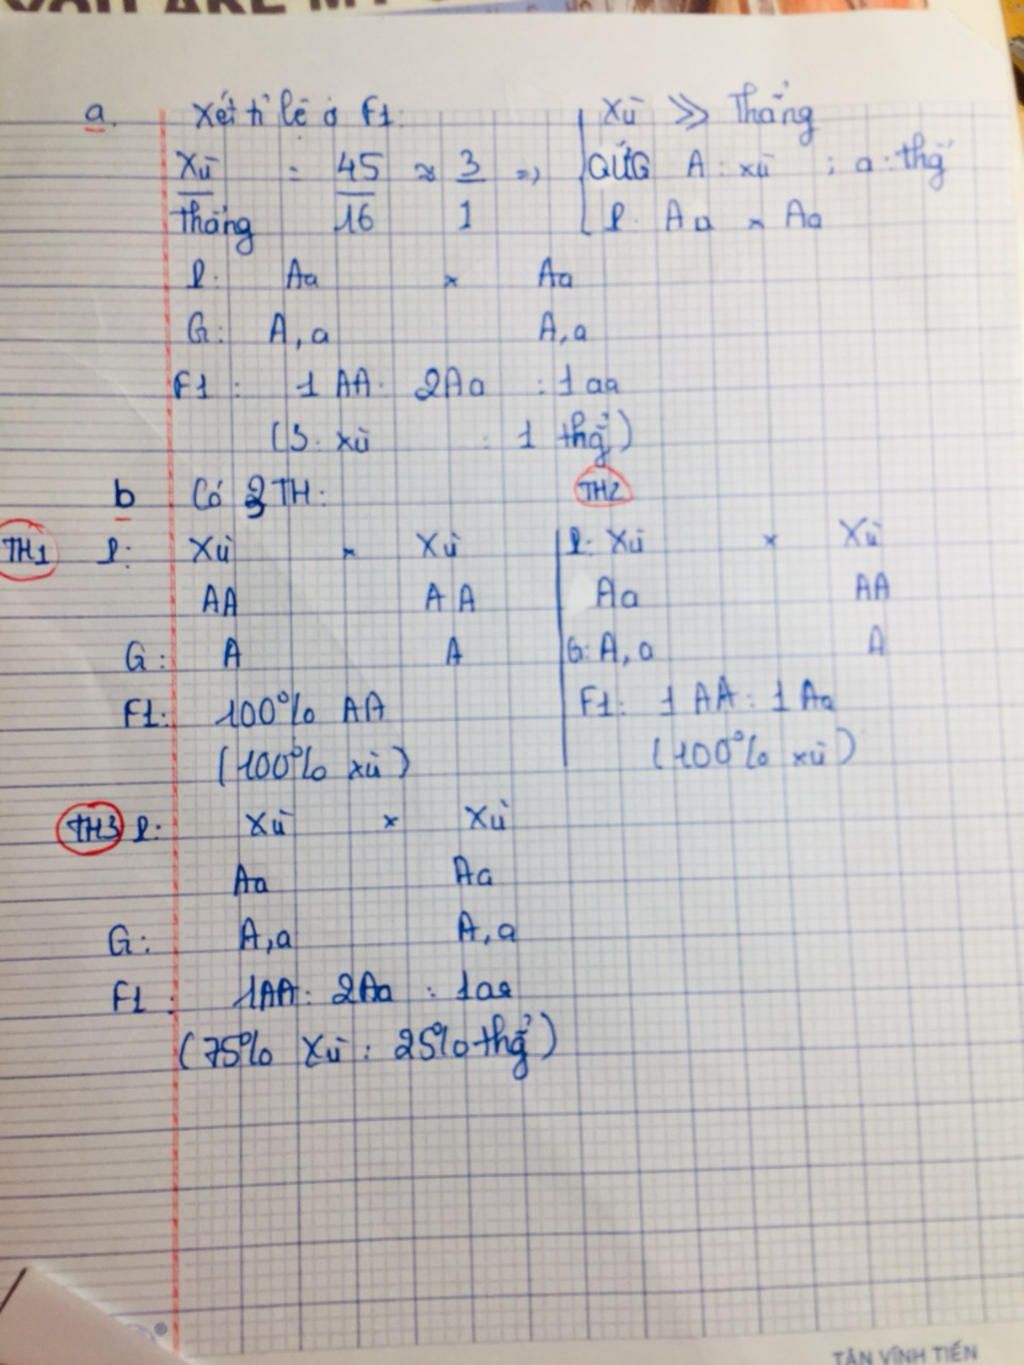 YOU ARE MY
a. Xét tỉ lệ ở F1:
Xù / Thẳng = 45 / 16 ≈ 3 / 1 =>
Xù >> Thẳng
QƯG A: xù ; a: thẳ
P: Aa × Aa
P: Aa × Aa
G: A, a A, a
F1: 1 AA: 2Aa : 1 aa
(3: xù : 1 thẳ)
b Có 3 TH:
TH1 P: Xù × Xù
AA AA
G: A A
F1: 100% AA
(100% xù)
TH2
P: Xù × Xù
Aa AA
G: A, a A
F1: 1 AA : 1 Aa
(100% xù)
TH3 P: Xù × Xù
Aa Aa
G: A, a A, a
F1: 1AA: 2Aa : 1aa
(75% Xù : 25% thẳ)
TÂN VĨNH TIẾN